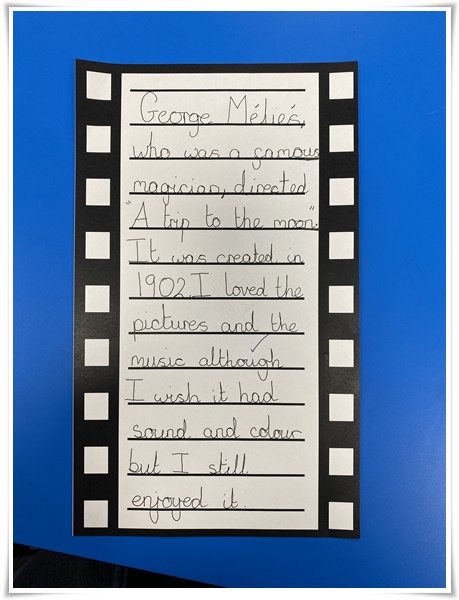 George Méliés,
who was a famous
magician, directed
"A trip to the moon".
It was created in
1902. I loved the
pictures and the
music although
I wish it had
sound and colour
but I still
enjoyed it.